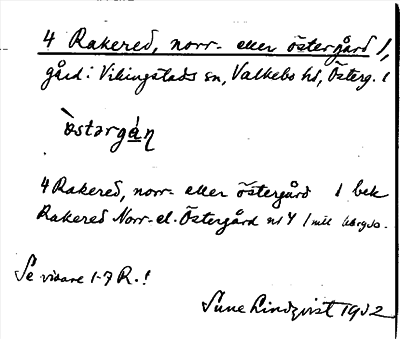 4 Rakered, norr- eller östergård 1,
gård i Vikingstads sn, Valkebo hd, Österg. l
östərgạ́η
4 Rakered, norr- eller östergård 1 bek
Rakered Norr- el. Östergård nr 4 1 mtl
Se vidare 1-7 R.!
Sune Lindqvist 1912